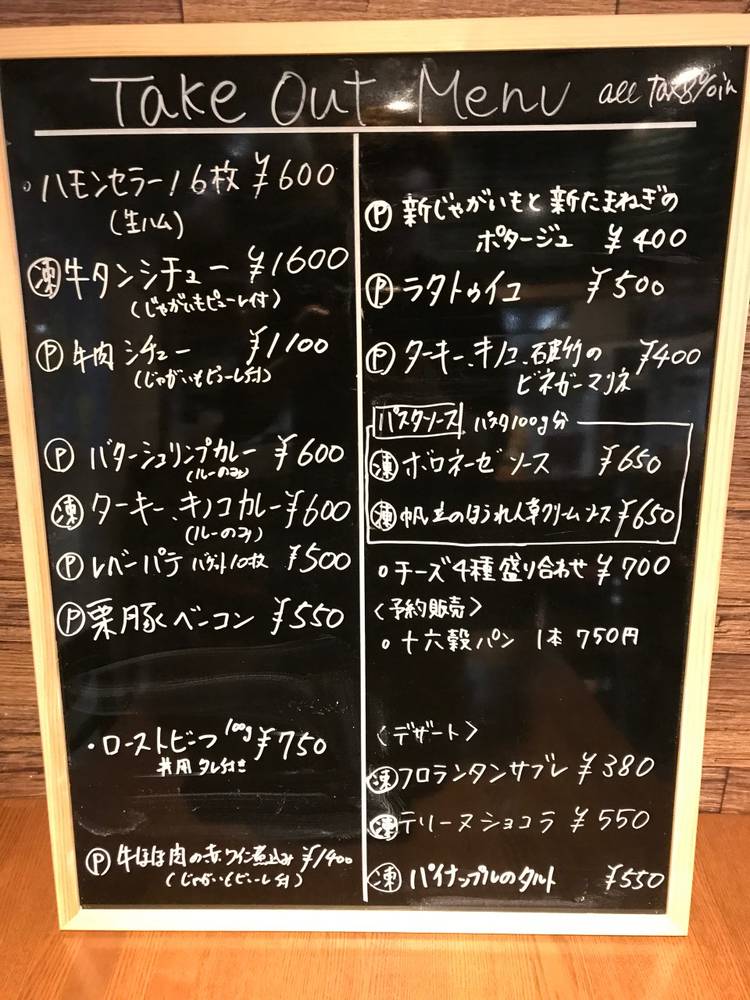 Take Out Menu all Tax8%in
・ハモンセラーノ 6枚 ¥600
(生ハム)
凍 牛タンシチュー ¥1600
(じゃがいもピューレ付)
P 牛肉シチュー ¥1100
(じゃがいもピューレ付)
P バターシュリンプカレー ¥600
(ルーのみ)
凍 ターキー、キノコカレー ¥600
(ルーのみ)
P レバーパテ バゲット10枚 ¥500
P 栗豚ベーコン ¥550
・ローストビーフ 100g ¥750
専用タレ付き
P 牛ほほ肉の赤ワイン煮込み ¥1400
(じゃがいもピューレ付)
P 新じゃがいもと新たまねぎの
ポタージュ ¥400
P ラタトゥイユ ¥500
P ターキー、キノコ、破竹の ¥400
ビネガーマリネ
パスタソース パスタ100g分
凍 ボロネーゼソース ¥650
凍 帆立のほうれん草クリームソース ¥650
・チーズ4種盛り合わせ ¥700
<予約販売>
・十六穀パン 1本 750円
<デザート>
凍 フロランタンサブレ ¥380
凍 テリーヌショコラ ¥550
凍 パイナップルのタルト ¥550